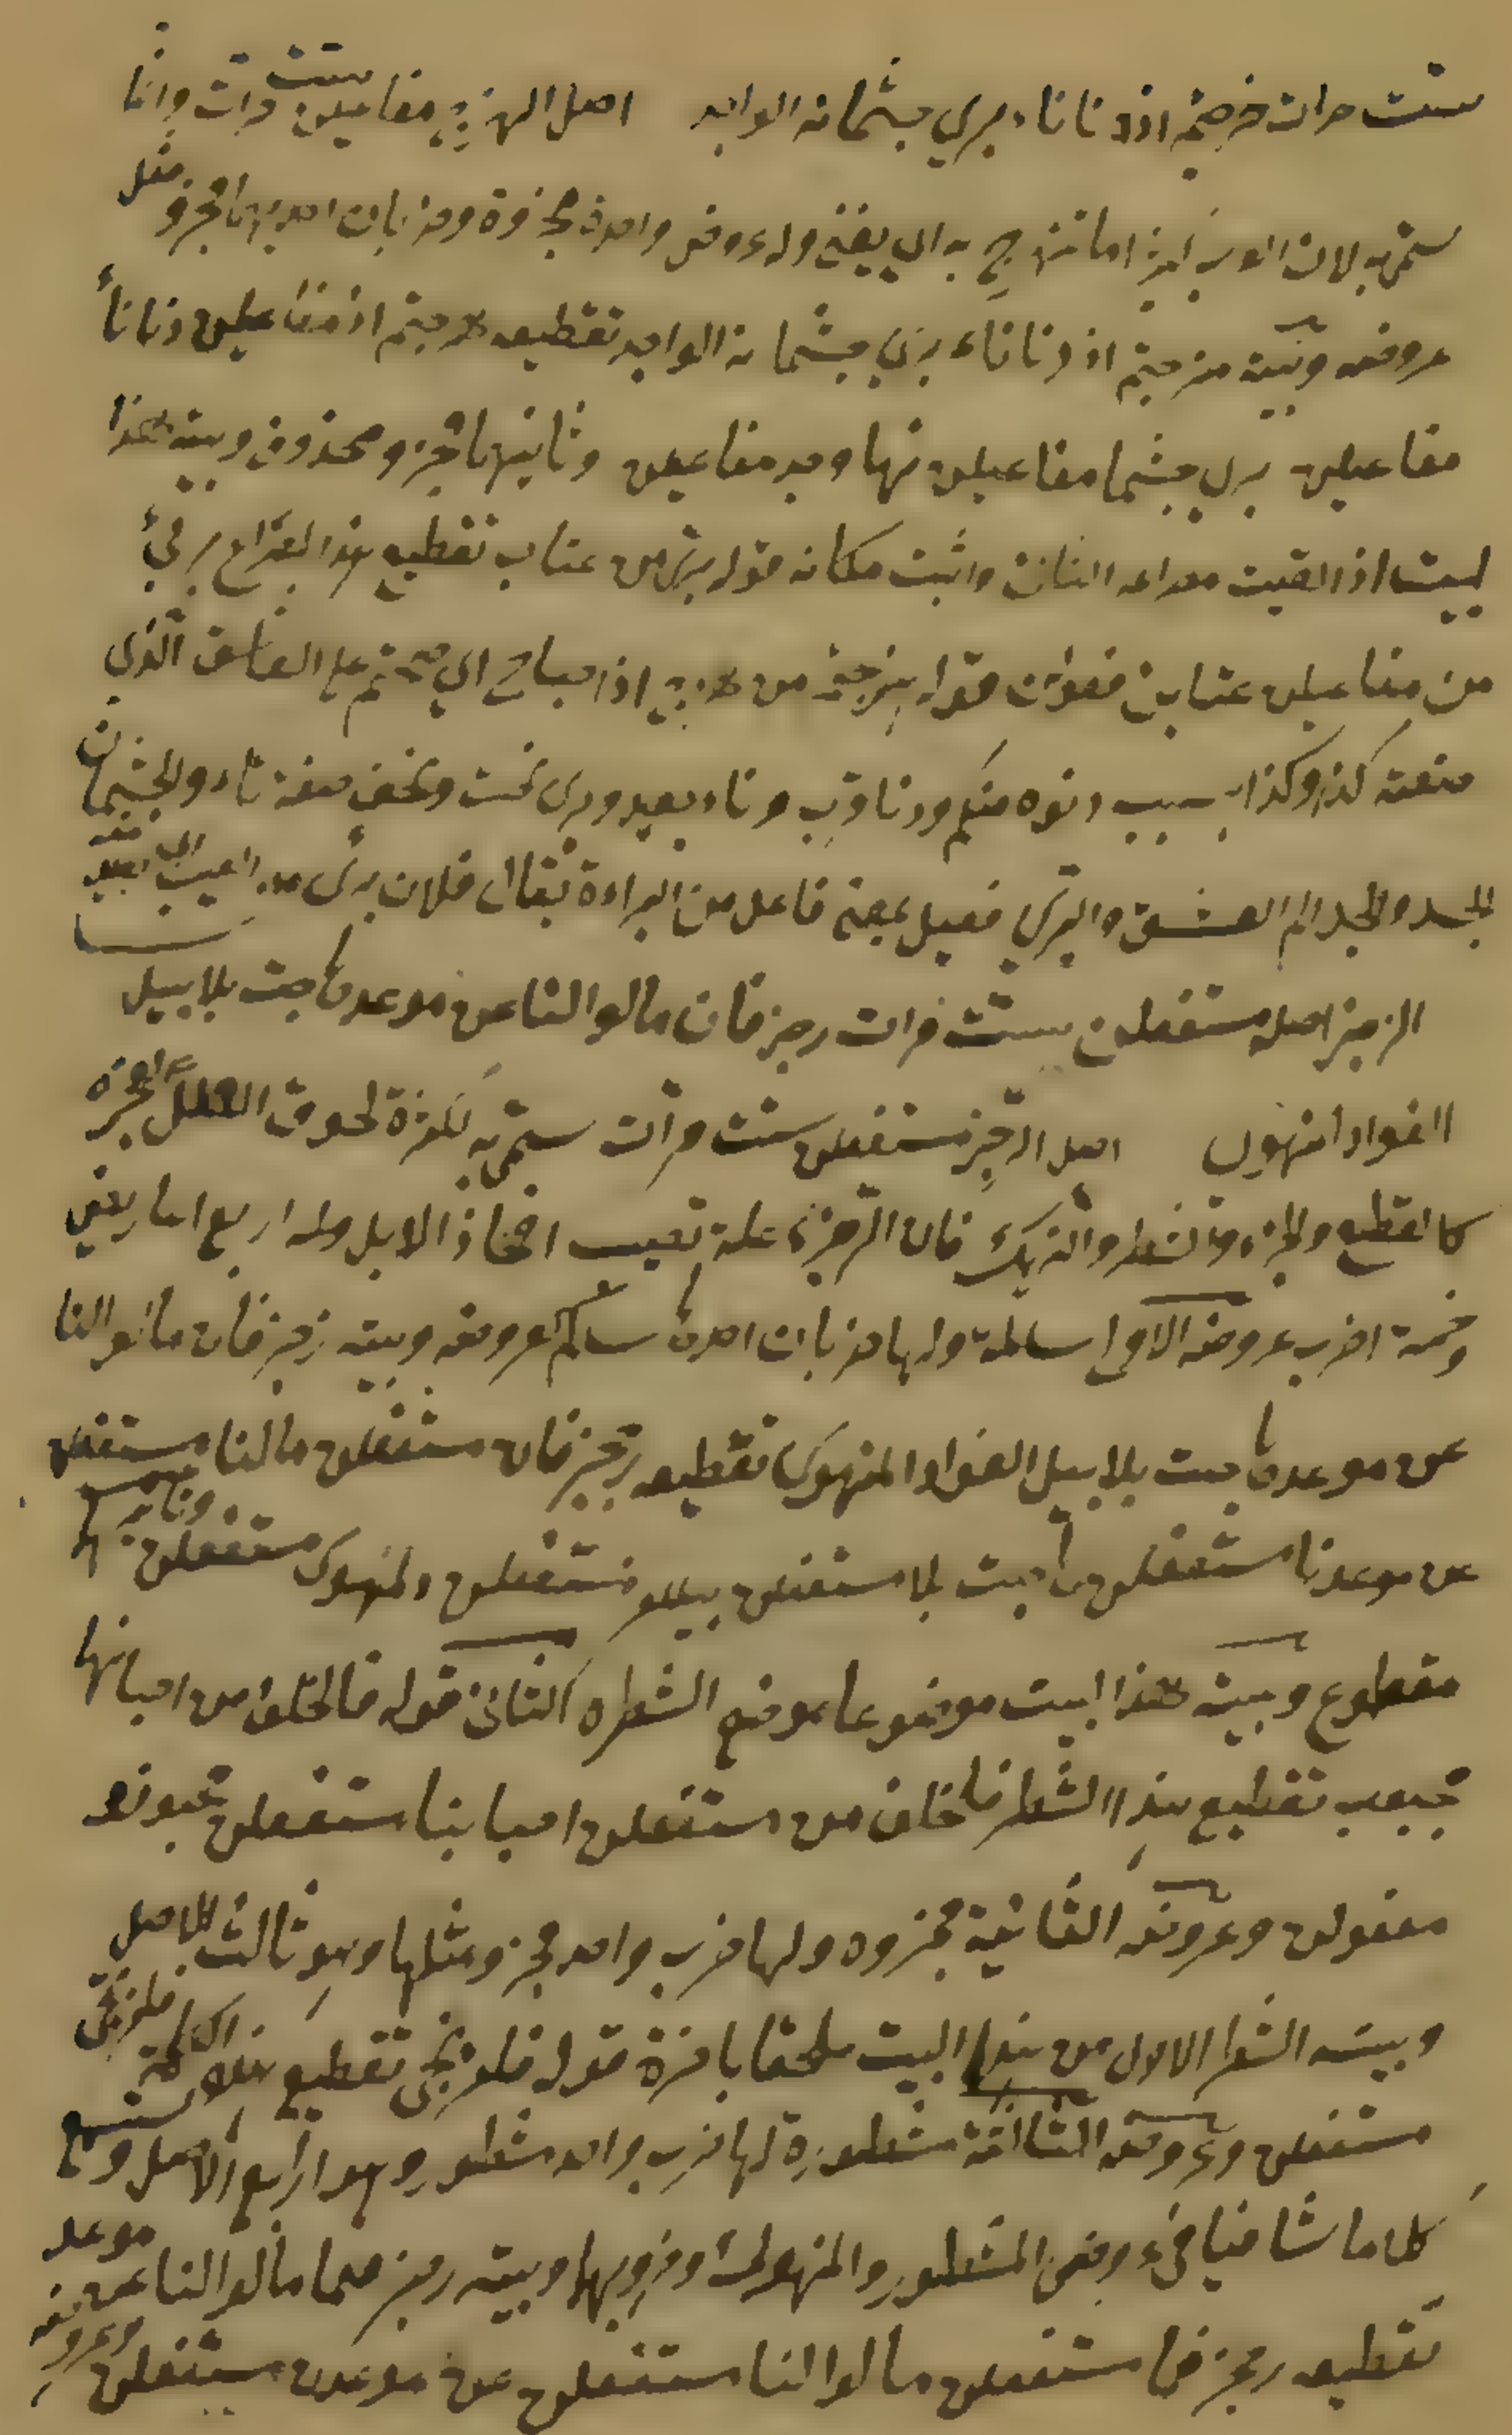 ستت مرات هزجتم اذ دنا ناء بري جشمانه الواجد اصل الهزج مفاعيلن ستت مرات وانما
سمي به لان العرب كثيرا ما تهزج به اي يغني وله عروض واحدة مجزوة وضربان احديهما مجزو مثل
عروضه وبيته هزجتم اذ دنا ناء بري جشمانه الواجد تقطيعه هزجتم اذ مفاعيلن دنا ناء
مفاعيلن بري جشما مفاعيلن نهلواجد مفاعيلن وثانيهما مجزو محذوف وبيته هذا
البيت اذ القيت مصراعه الثاني واثبت مكانه قوله بريء من عتاب تقطيع هذا المصراع بريء
من مفاعيلن عتابن فعولن قوله هزجتم من هزج اذا صاح اي صحتم على العاشق الذي
صفته كذا وكذا بسبب دنوه منكم ودنا قرب وناء بعيد وبرى نحت ونحف صفة ناء والجشمان
الجسد والوجد الم العشق والبري فعيل بمعنى فاعل من البراءة يقال فلان برئ من العيب اي بعيد
الرجز اصله مستفعلن ستت مرات رجز فان مالوا لنا عن موعد هاجت بلابيل
الفواد المنهوك اصل الرجز مستفعلن ستت مرات سمي به لكثرة لحوق العلل اجزاه
كالقطع والجزء والشطر والنهك فان الرجز علة تصيب افخاذ الابل وله اربع اعاريض
وخمسة اضرب عروضه الاولى سالمة ولها ضربان احدها سالم كعروضه وبيته رجز فان مالوا لنا
عن موعد هاجت بلابيل الفواد المنهوك تقطيعه رجز فان مستفعلن مالو لنا مستفعلن
عن موعدن مستفعلن هاجت بلا مستفعلن بيللفوا مستفعلن دلمنهوكي مستفعلن وثانيهما
مقطوع وبيته هذا البيت موضوعا موضع الشطره الثاني قوله فالخلف من احبابنا
محبوب تقطيع هذا الشطر فلخلف من مستفعلن احبابنا مستفعلن محبوبو
مفعولن وعروضه الثانية مجزوه ولها ضرب واحد مجزو مثلها وهو ثالث الاصل
وبيته الشطر الاول من هذا البيت ملحقا باخرة قوله تقطيع هذا الكلمة
مستفعلن وعروضه الثالثة مشطورة لها ضرب واحد مشطور وهو رابع الاصل
كلاما شافيا في عروض المشطور والمنهوك وضروبهما وبيته رجز مالوا لنا عن موعد
تقطيعه رجز مستفعلن مالوا لنا مستفعلن عن موعدن مستفعلن وعروضه